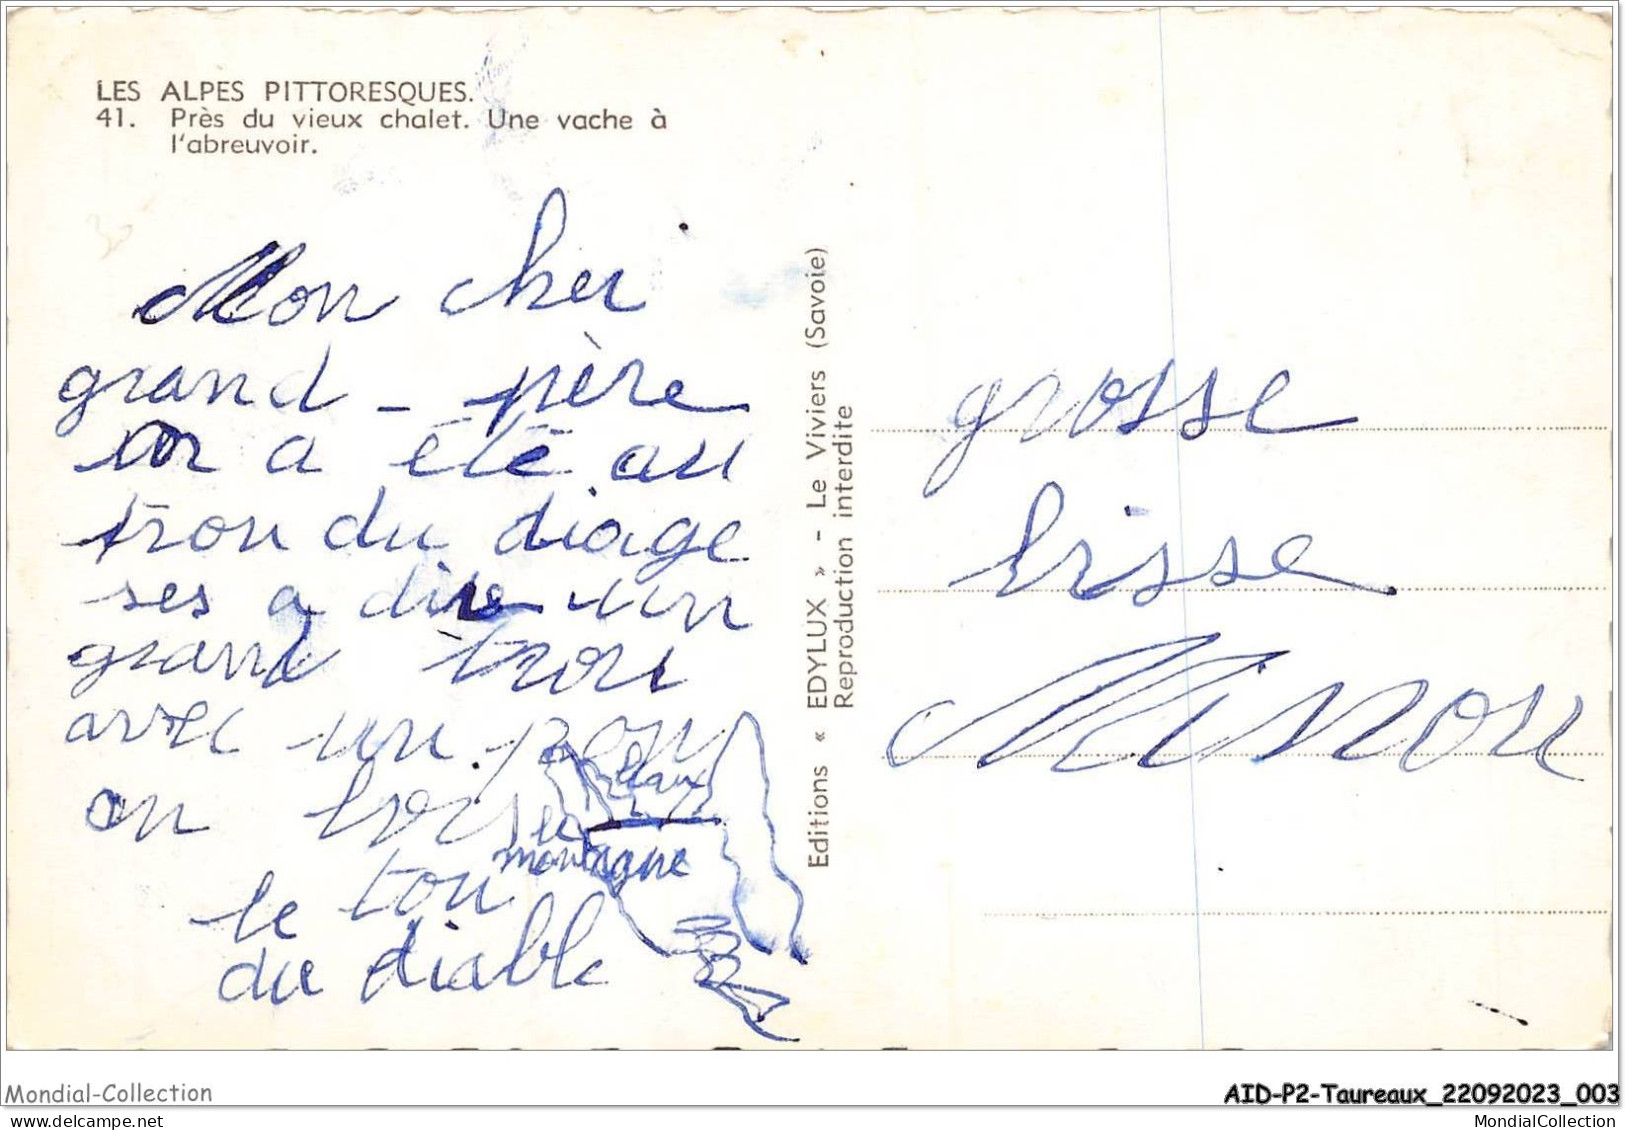 LES ALPES PITTORESQUES.
41. Près du vieux chalet. Une vache à
l'abreuvoir.
Mon cher
grand-père
on a été au
trou du diage
ses a dire un
grand trou
avec un pon
en bois
le tou
du diable
l'eaux
la
montagne
Editions « EDYLUX » - Le Viviers (Savoie)
Reproduction interdite
grosse
bisse
Ninou
Mondial-Collection
AID-P2-Taureaux_22092023_003
https://www.delcampe.net
MondialCollection